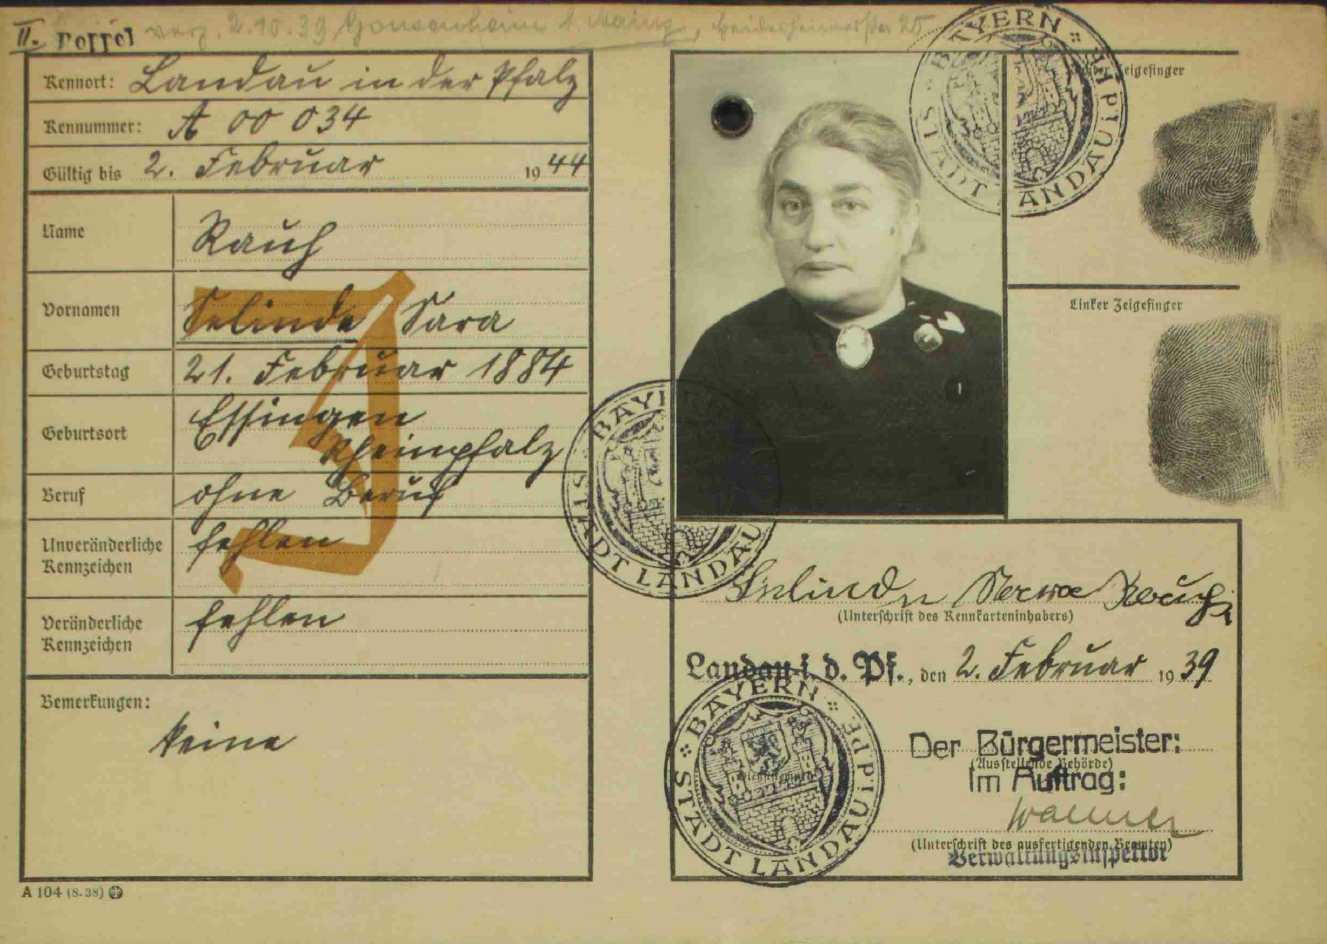 II. Doppel
verz. 2.10.39 Gonsenheim b. Mainz,
Kennort: Landau in der Pfalz
Kennummer: A 00 034
Gültig bis 2. Februar 1944
Name Rauh
Vornamen Selinde Sara
Geburtstag 21. Februar 1884
Geburtsort Essingen
Rheinpfalz
Beruf ohne Beruf
Unveränderliche fehlen
Kennzeichen
Veränderliche fehlen
Kennzeichen
Bemerkungen:
keine
J
A 104 (8. 38)
BAYERN
STADT LANDAU i.d. Pf.
Zeigefinger
Linker Zeigefinger
BAYERN
STADT LANDAU
Selinde Sara Rauh
(Unterschrift des Kennkarteninhabers)
Landau i. d. Pf., den 2. Februar 1939
BAYERN
STADT LANDAU i.d. Pf.
Der Bürgermeister:
(Ausstellende Behörde)
Im Auftrag:
(Unterschrift des ausfertigenden Beamten)
Verwaltungsinspektor